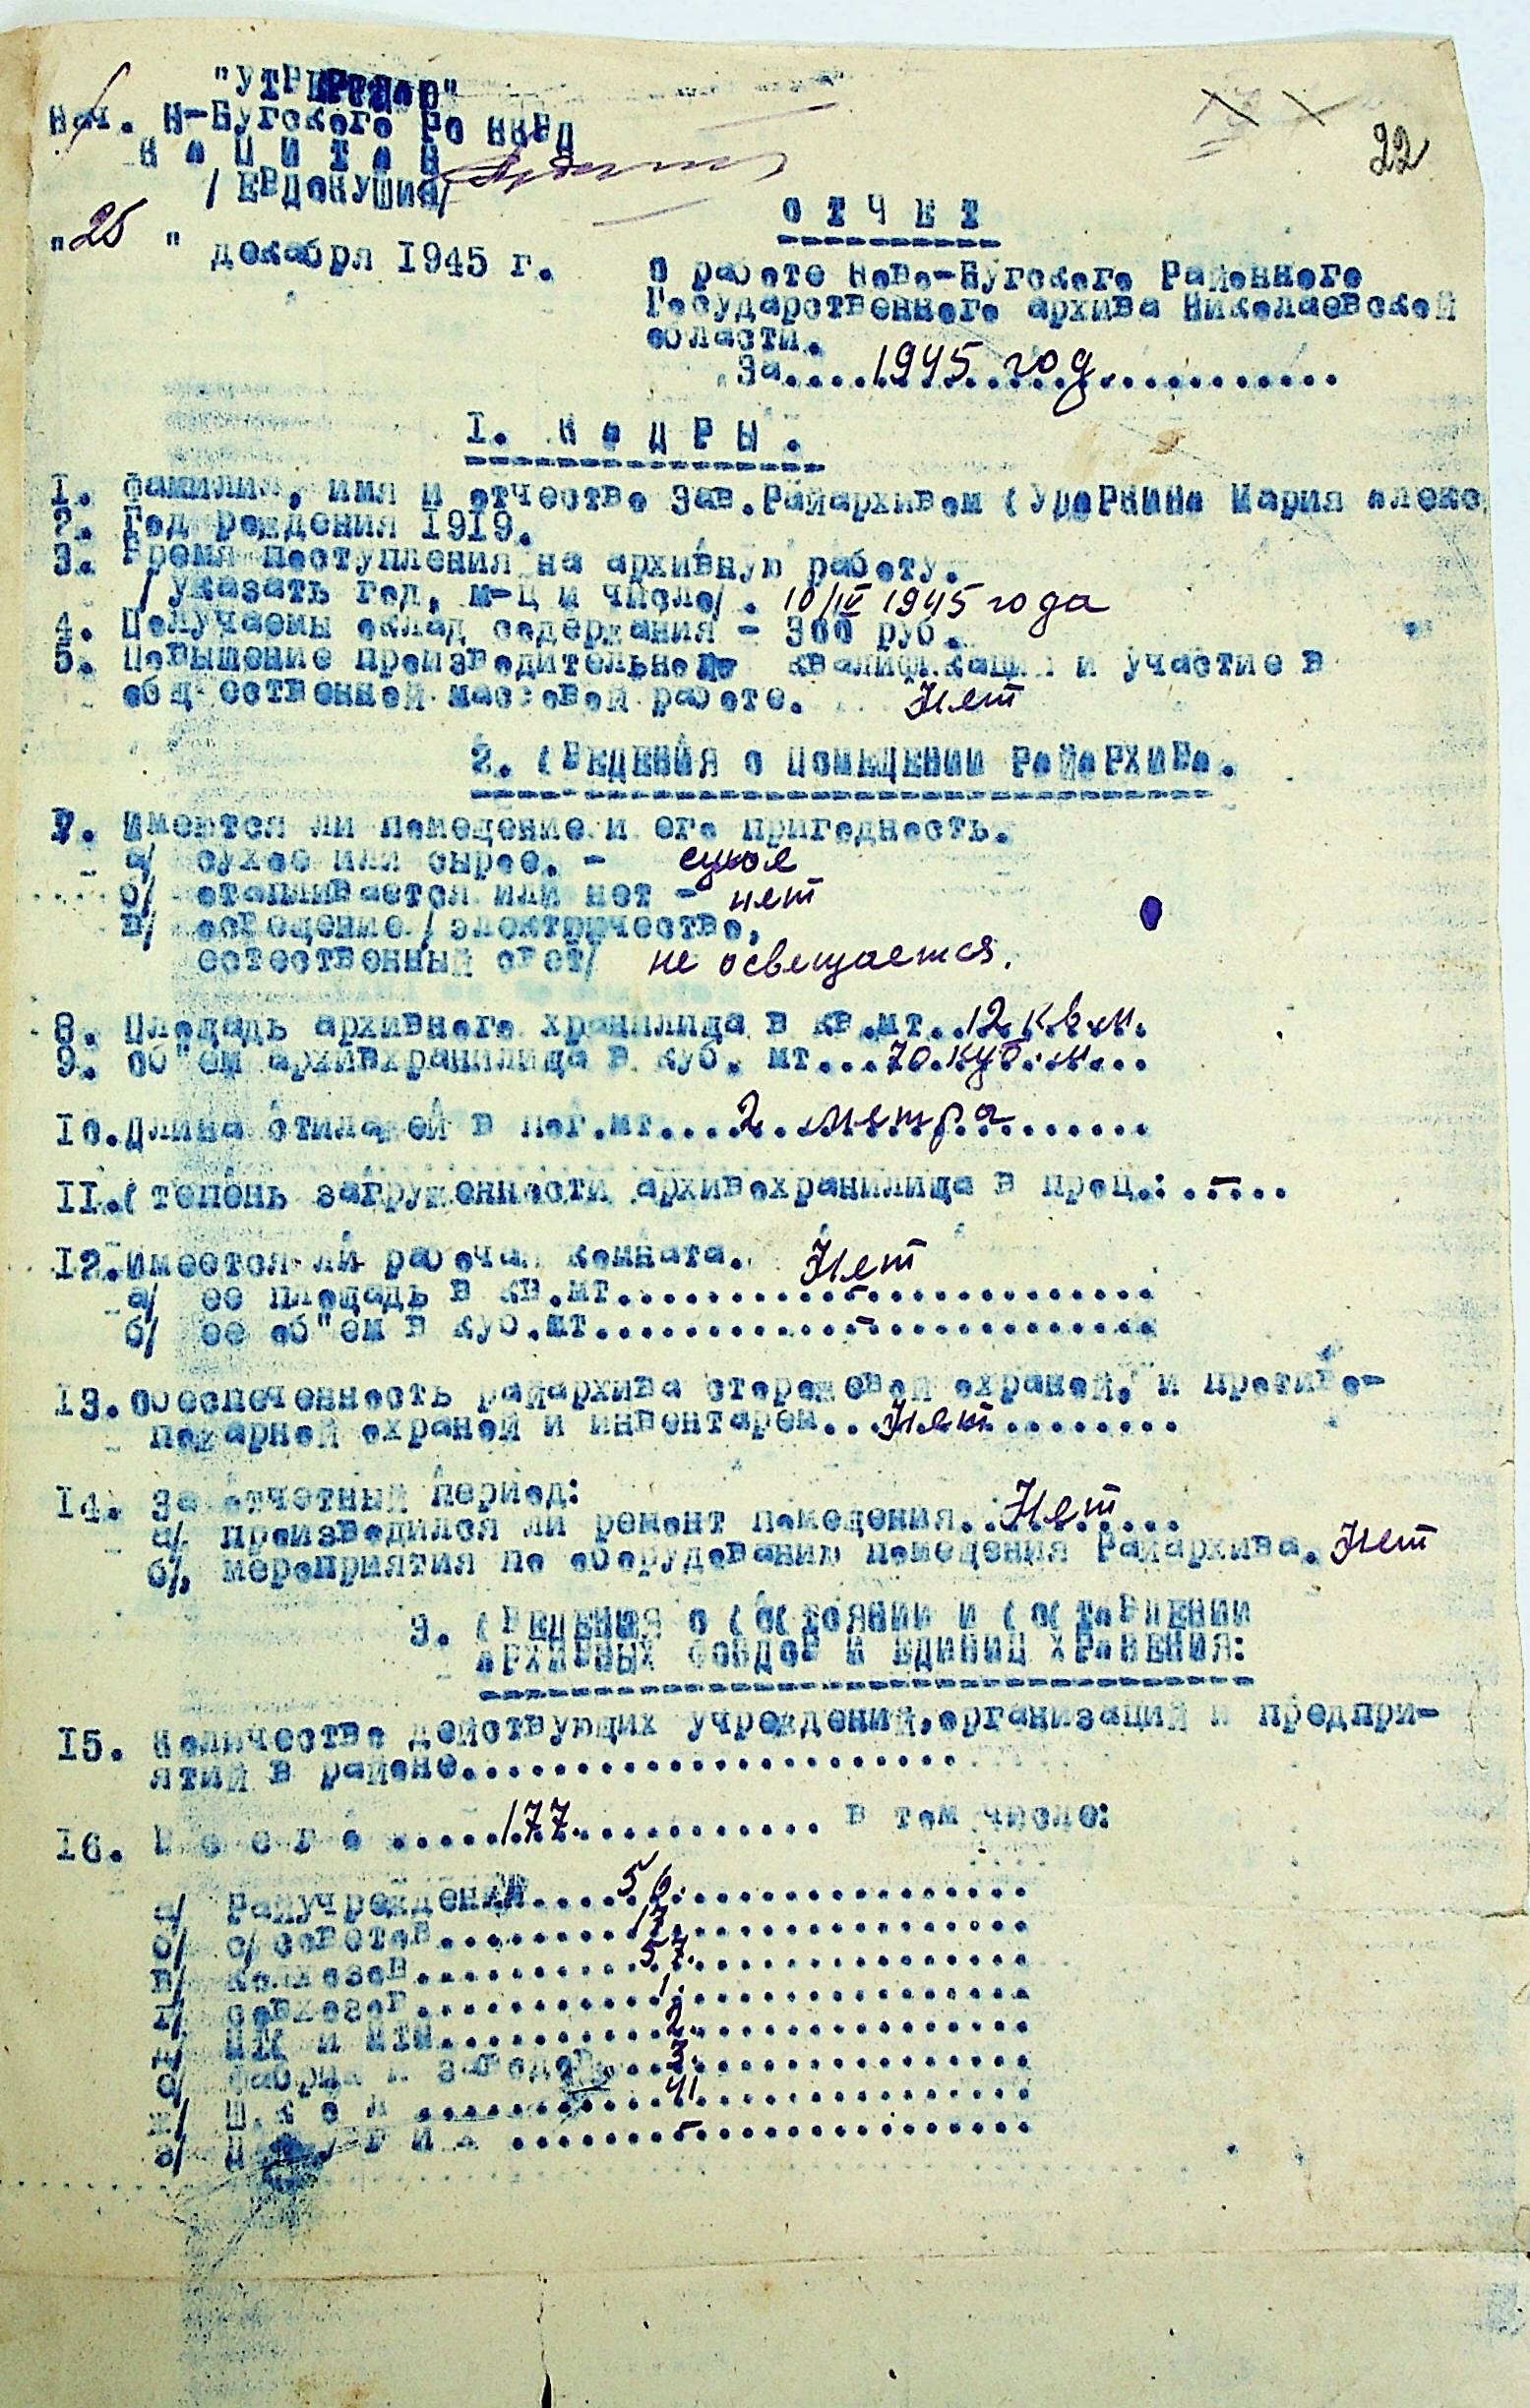 22
Нач. Н-Бугского РО НКВД
К а п и т а н
"25" декабря 1945 г.
О Т Ч Е Т
О работе Ново-Бугского Районного
Государственного архива Николаевской
области.
За....1945 год...............
I. К а Д Р Ы .
1. Фамилия, имя и отчество Зав.Райархивом Мария Алекс.
2. Год рождения 1919.
3. Время поступления на архивную работу.
/указать год, м-ц и число/. 10/IV 1945 года
4. Получаемы оклад содержания - 300 руб.
5. Повышение производительной квалификации и участие в
общественной массовой работе. Нет
2. СВЕДЕНИЯ О ПОМЕЩЕНИИ РАЙАРХИВА.
7. Имеется ли помещение и его пригодность.
а/ сухое или сырое. - сухое
б/ отапливается или нет - нет
в/ освещение /электричество,
естественный свет/ не освещается.
8. Площадь архивного хранилища в кв.мт..12 кв.м.
9. Об"ем архивхранилища в куб. мт...70.куб.м...
10.Длина стилажей в пог.мт....2 метра........
11.Степень загруженности архивохранилища в проц.: ..-...
12.Имеется ли рабочая комната. Нет
а/ ее площадь в кв.мт............-..............
б/ ее об"ем в куб.мт.............-..............
13. Обеспеченность райархива сторожевой охраной, и противо-
пожарной охраной и инвентарем...Нет.........
14. За отчетный период:
а/ производился ли ремонт помещения..Нет....
б/, мероприятия по оборудованию помещения Райархива. Нет
3. СВЕДЕНИЯ О СОСТОЯНИИ И СОСТАВЛЕНИИ
АРХИВНЫХ ФОНДОВ И ЕДИНИЦ ХРАНЕНИЯ:
15. Количество действующих учреждений,организаций и предпри-
ятий в районе........................
16. В с е г о .....177............. в том числе:
а/ Райучреждений.....56................
б/ с/советов.........17................
в/ колхозов..........57................
г/ совхозов..........1.................
д/ МТС и МТМ.........2.................
е/ Фабрик и заводов....3................
ж/ Ш к о л ..........41................
з/ .......-...............